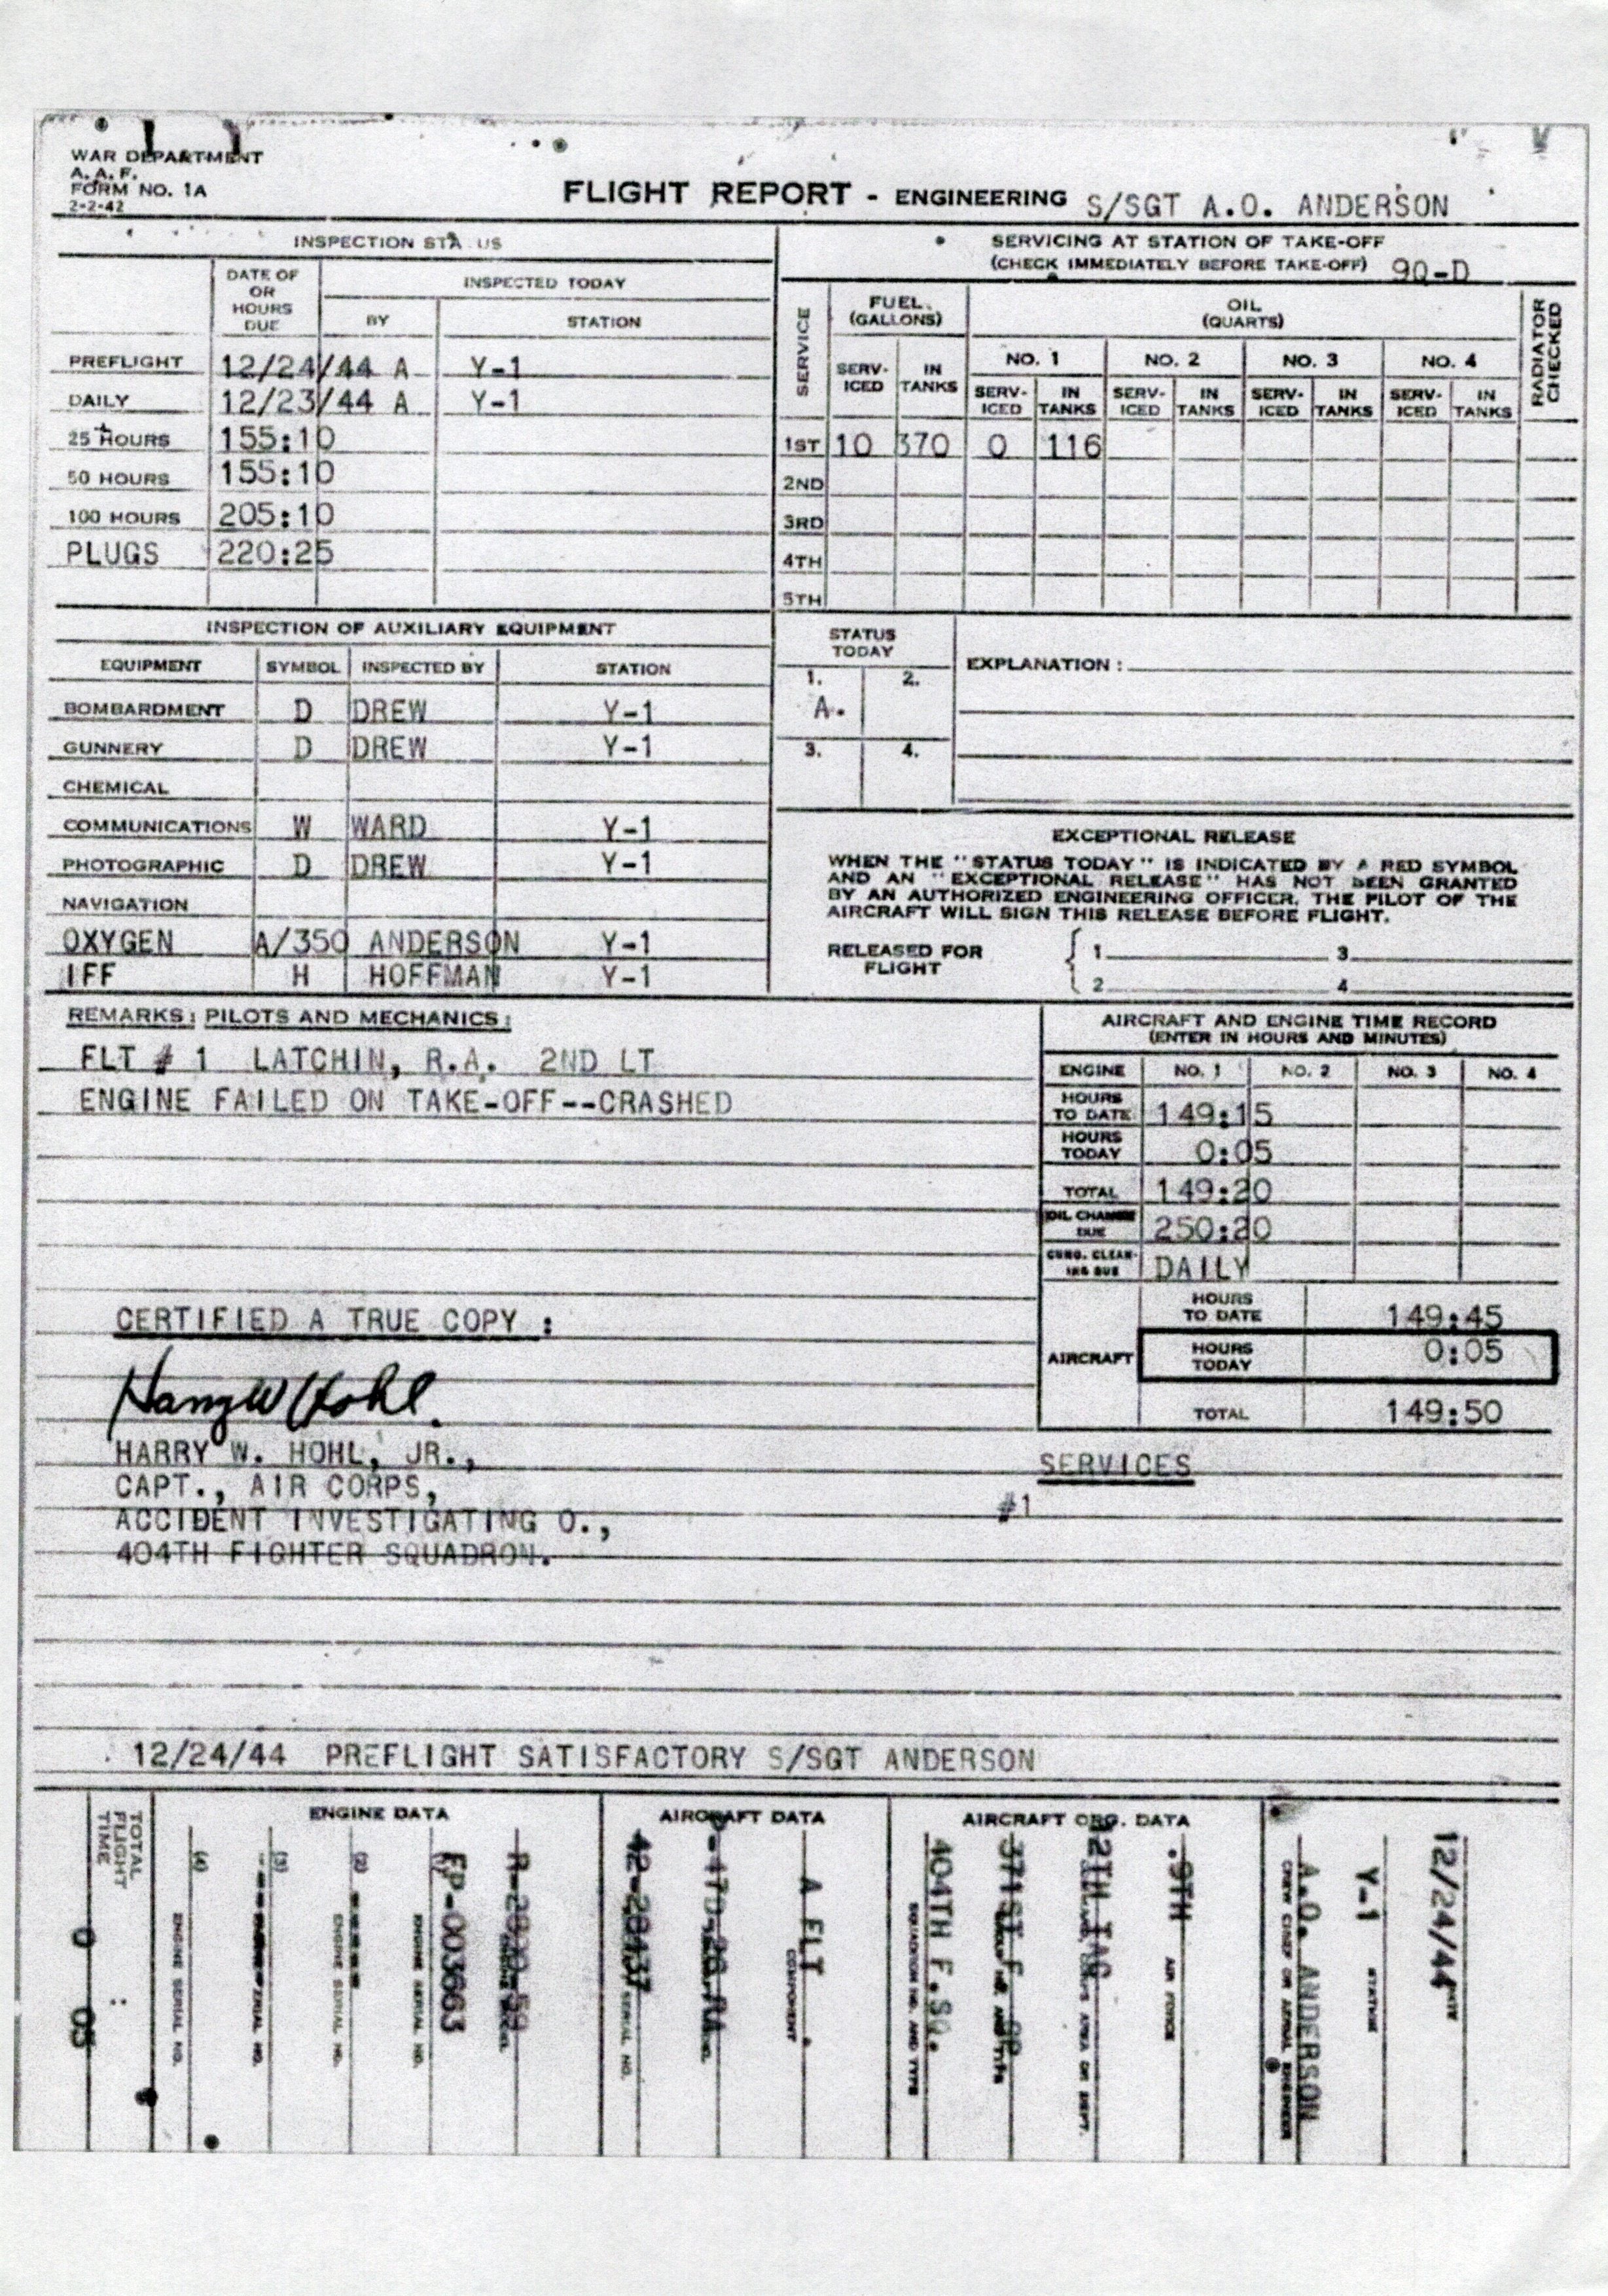 WAR DEPARTMENT
A. A. F.
FORM NO. 1A
2-2-42
FLIGHT REPORT - ENGINEERING S/SGT A.O. ANDERSON
INSPECTION STA US
DATE OF OR HOURS DUE
INSPECTED TODAY
BY STATION
PREFLIGHT 12/24/44 A Y-1
DAILY 12/23/44 A Y-1
25 HOURS 155:10
50 HOURS 155:10
100 HOURS 205:10
PLUGS 220:25
SERVICING AT STATION OF TAKE-OFF
(CHECK IMMEDIATELY BEFORE TAKE-OFF) 90-D
SERVICE
FUEL (GALLONS)
OIL (QUARTS)
RADIATOR CHECKED
NO. 1 NO. 2 NO. 3 NO. 4
SERV-ICED IN TANKS SERV-ICED IN TANKS SERV-ICED IN TANKS SERV-ICED IN TANKS SERV-ICED IN TANKS
1ST 10 370 0 116
2ND
3RD
4TH
5TH
INSPECTION OF AUXILIARY EQUIPMENT
EQUIPMENT SYMBOL INSPECTED BY STATION
BOMBARDMENT D DREW Y-1
GUNNERY D DREW Y-1
CHEMICAL
COMMUNICATIONS W WARD Y-1
PHOTOGRAPHIC D DREW Y-1
NAVIGATION
OXYGEN A/350 ANDERSON Y-1
IFF H HOFFMAN Y-1
STATUS TODAY
1. 2.
A.
3. 4.
EXPLANATION:
EXCEPTIONAL RELEASE
WHEN THE "STATUS TODAY" IS INDICATED BY A RED SYMBOL
AND AN "EXCEPTIONAL RELEASE" HAS NOT BEEN GRANTED
BY AN AUTHORIZED ENGINEERING OFFICER, THE PILOT OF THE
AIRCRAFT WILL SIGN THIS RELEASE BEFORE FLIGHT.
RELEASED FOR FLIGHT
1 3
2 4
REMARKS: PILOTS AND MECHANICS:
FLT # 1 LATCHIN, R.A. 2ND LT
ENGINE FAILED ON TAKE-OFF--CRASHED
AIRCRAFT AND ENGINE TIME RECORD
(ENTER IN HOURS AND MINUTES)
ENGINE NO. 1 NO. 2 NO. 3 NO. 4
HOURS TO DATE 149:15
HOURS TODAY 0:05
TOTAL 149:20
OIL CHANGE DUE 250:20
CUNO. CLEAN-ING DUE DAILY
AIRCRAFT
HOURS TO DATE 149:45
HOURS TODAY 0:05
TOTAL 149:50
CERTIFIED A TRUE COPY :
Harry W Hohl.
HARRY W. HOHL, JR.,
CAPT., AIR CORPS,
ACCIDENT INVESTIGATING O.,
404TH FIGHTER SQUADRON.
SERVICES
#1
12/24/44 PREFLIGHT SATISFACTORY S/SGT ANDERSON
TOTAL FLIGHT TIME
0 : 05
ENGINE DATA
(4) ENGINE SERIAL NO.
(3)
(2) ENGINE SERIAL NO.
ENGINE SERIAL NO.
FP-003663
AIRCRAFT DATA
SERIAL NO.
A FLT
COMPONENT
AIRCRAFT ORG. DATA
404TH F.SQ.
SQUADRON NO. AND TYPE
371ST F.
12TH TAC
9TH
AIR FORCE
A.O. ANDERSON
CREW CHIEF OR AERIAL ENGINEER
Y-1
STATION
12/24/44
DATE